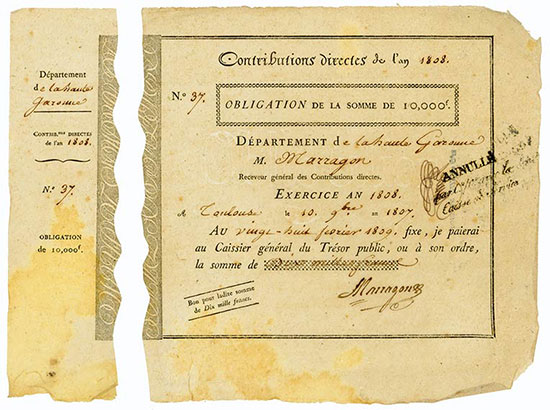 Département
de la haute
Garonne
CONTRIB.ons DIRECTES
de l'an 1808.
N.o 37.
OBLIGATION
de 10,000f.
Contributions directes de l'an 1808.
N.o 37. OBLIGATION DE LA SOMME DE 10,000f.
DÉPARTEMENT de la haute Garonne
M. Marragon
Receveur général des Contributions directes.
EXERCICE AN 1808.
A Toulouse le 10 9bre AN 1807.
AU vingt-huit février 1809 fixe, je paierai
au Caissier général du Trésor public, ou à son ordre,
la somme de Dix mille francs
Bon pour ladite somme
de Dix mille francs.
Marragon
ANNULLÉ
par
Caisse de Service